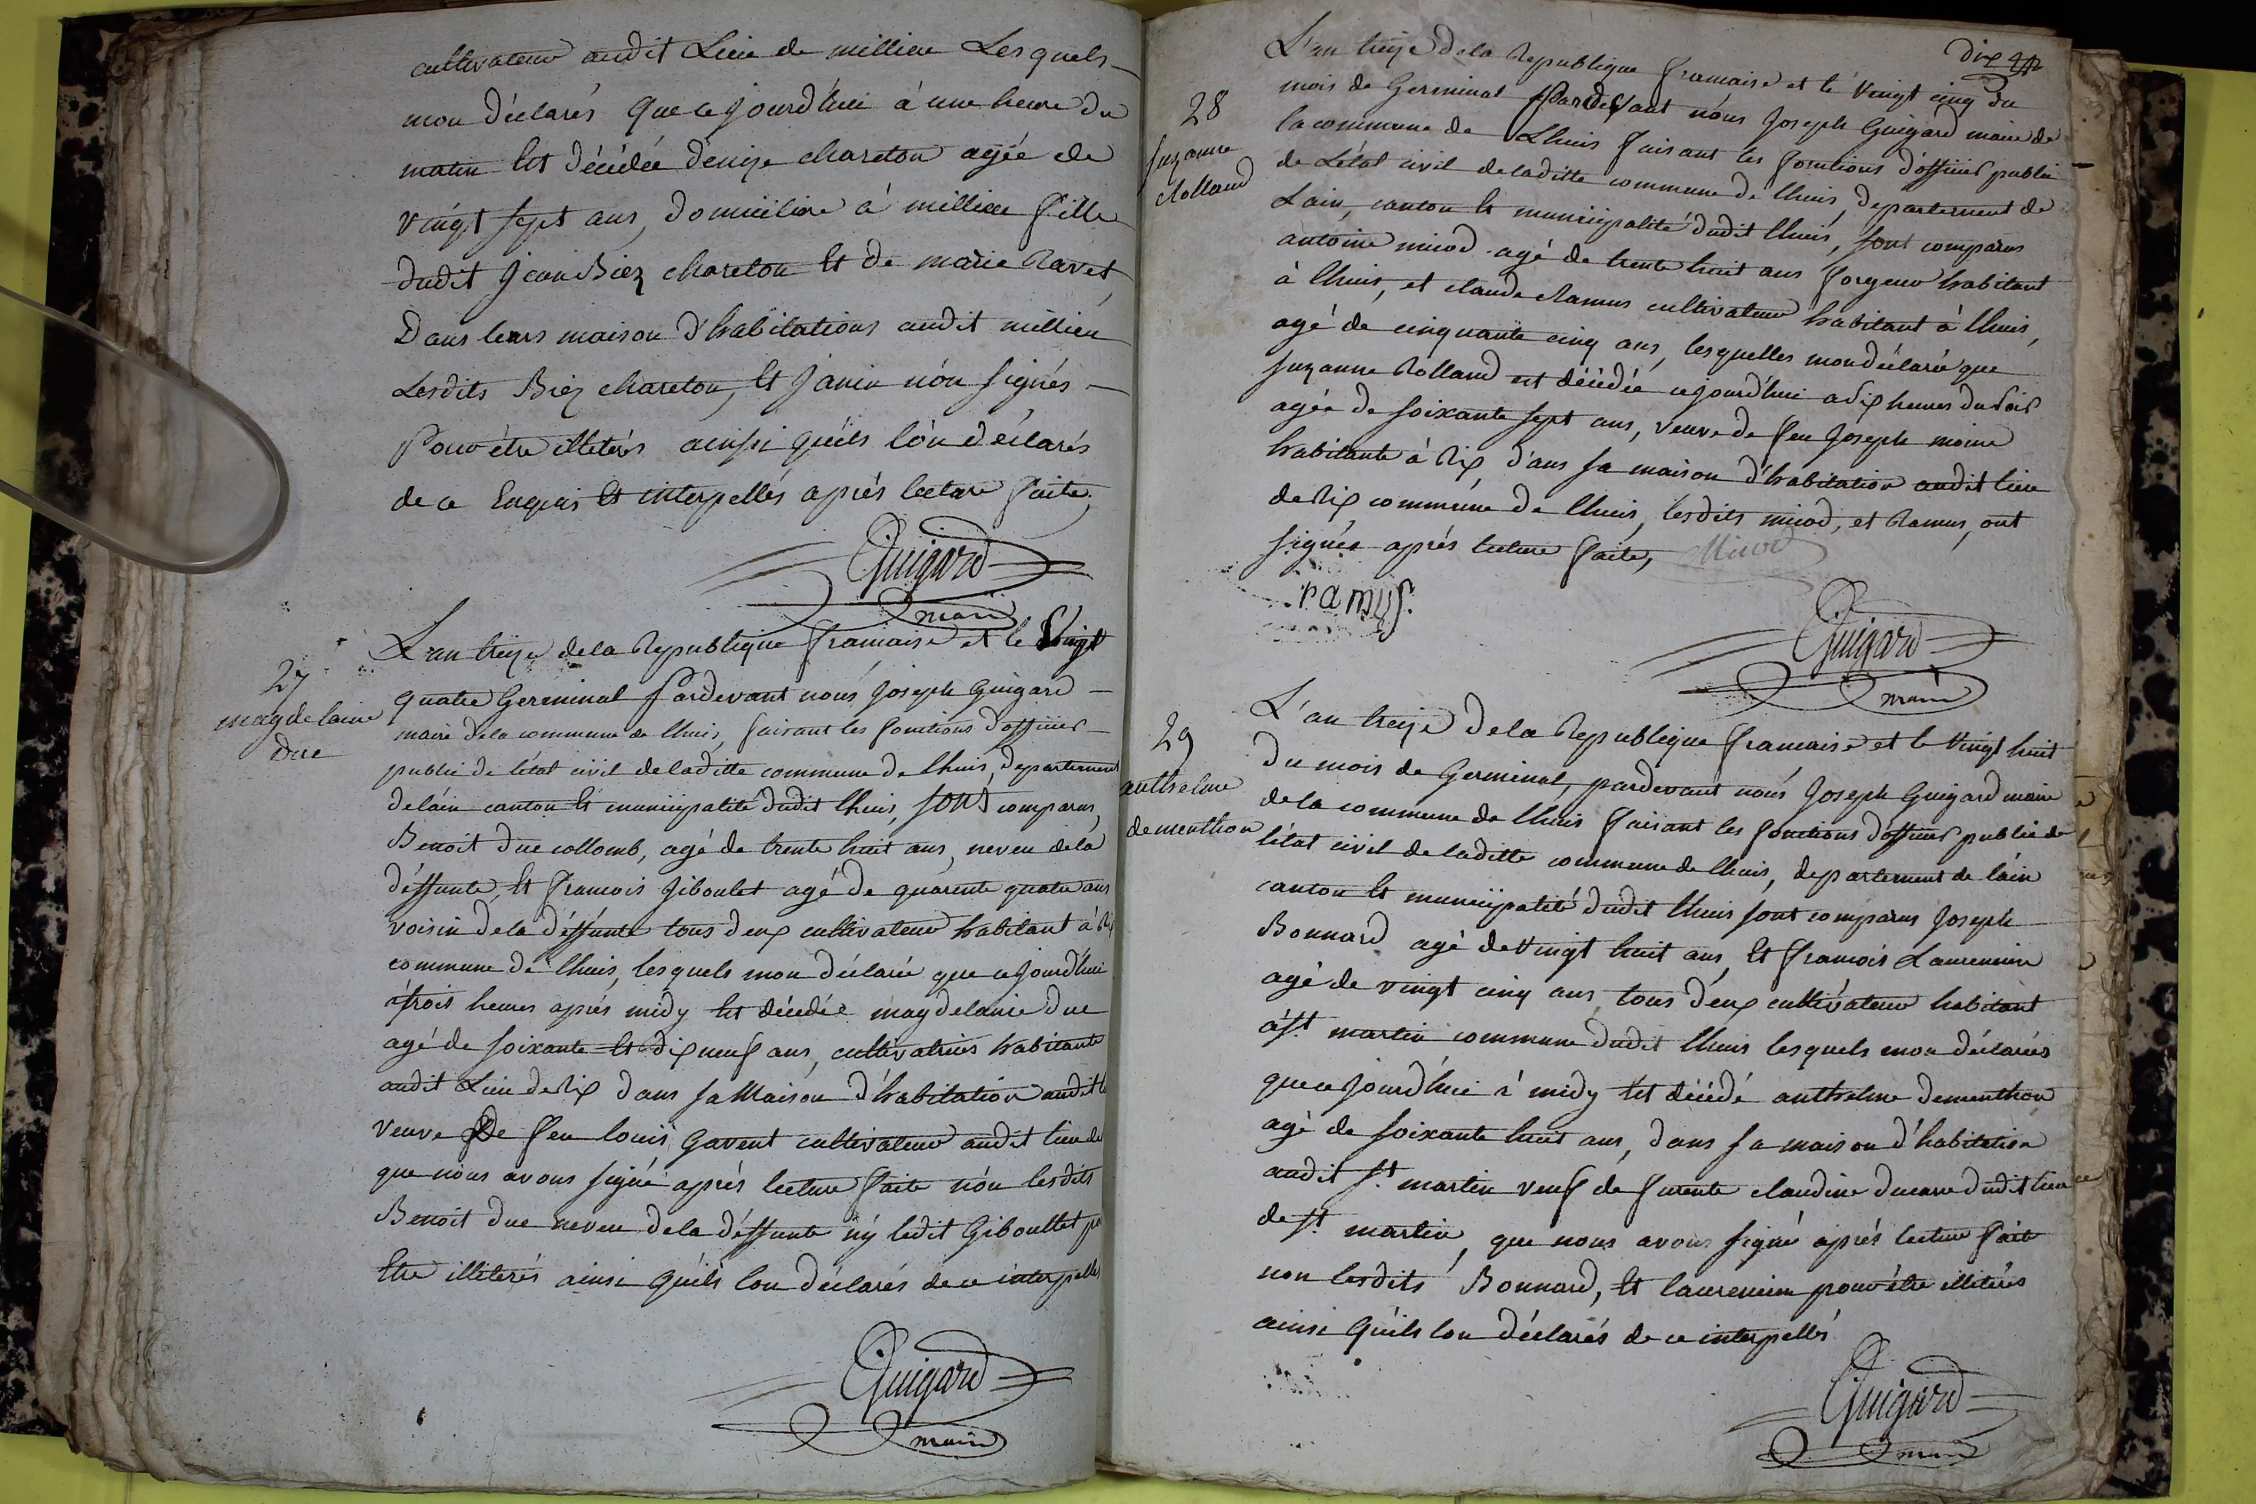 cultivateur audit Lieu de millieu Lesquels
mon déclarés que cejourd'hui à une heure du
matin Est décédée dénize chareton agée de
vingt sept ans, domiciliée à millieu fille
dudit Jean Biez chareton Et de marie Ravet,
Dans leurs maison d'habitations audit millieu
Lesdits Biez chareton, Et Janin nón signés
Pour être illeterés ainsi quéils lón déclarés
de ce Enquis Et interpellés aprés lecture faite,
Guigard
maire
27
magdelaine
duc
L'an treize dela Republique francaise et le Vingt
quatre Germinal Pardevant nous Joseph Guigard
maire dela commune de lhuis, faisant les fonctions d'officier
public de létat civil deladitte commune de lhuis, departement
deláin canton Et municipalité dudit lhuis, sont comparus,
Benoit duc collomb, agé de trente huit ans, neveu dela
déffunte, Et francois Giboulet agé de quarente quatre ans
voisin déla déffunte tous deux cultivateur habitant à Rix
commune de lhuis, lesquels mon déclarée que cejourd'hui
à trois heures aprés midy Est décédée magdelaine duc
agé de soixante Et dix neuf ans, cultivatrices habitante
audit Lieu de Rix dans sa Maison d'habitation audit
veuve De feu louis Gavent cultivateur audit lieu de
que nous avons signé aprés lecture faite nón lesdits
Benoit duc neveu dela déffunte ný ledit Giboullet
Etre illiterés ainsi quéils lon déclarés de ce interpellés
Guigard
maire
dix
28
suzanne
Rolland
L'an treize dela Republique francaise et le vingt cinq du
mois de Germinal Pardevant nous Joseph Guigard maire de
la commune de Lhuis faisant les fonctions d'officier public
de Létat civil deladitte commune de lhuis, departement de
Lain, canton Et municipalité dudit lhuis, sont comparus
antoine micod agé de trente huit ans forgeur habitant
à lhuis, et claude Ramus cultivateur habitant à lhuis,
agé de cinquante cinq ans, lesquelles mon déclarée que
suzanne Rolland est décédée cejourd'hui a dix heures du soir
agée de soixante sept ans, veuve de feu Joseph moine
habitante à Rix dans sa maison d'habitation audit lieu
de Rix commune de lhuis, lesdits micod, et Ramus, ont
signés aprés lecture faite, Micod
ramus.
Guigard
maire
29
anthelme
dementhon
L'an treize dela Republique francaise et le Vingt huit
du mois de Germinal, pardevant nous Joseph Guigard maire
dela commune de lhuis faisant les fonctions d'officier public de
létat civil deladitte commune de lhuis, departement de láin
canton Et municipalité dudit lhuis sont comparus Joseph
Bonnard agé de vingt huit ans, Et francois Laurencin
agé de vingt cinq ans tous deux cultivateur habitant
à st. martin commune dudit lhuis lesquels mon déclarées
que cejourd'hui à midy Est décédé anthelme dementhon
agé de soixante huit ans, dans sa maison d'habitation
audit st. martin veuf de furente claudine ducarre dudit lieu
de st. martin, que nous avons signé aprés lecture fait
non lesdits Bonnard, Et laurencin pour être illiterés
ainsi quéils lon déclarés de ce interpellés
Guigard
maire